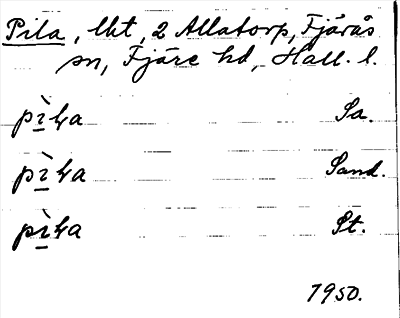 Pila, lht, 2 Allatorp, Fjärås
sn, Fjäre hd, Hall. l.
pì̲ɮa Sa.
pì̲ɮa Sand.
pì̲ɮa St.
1950.